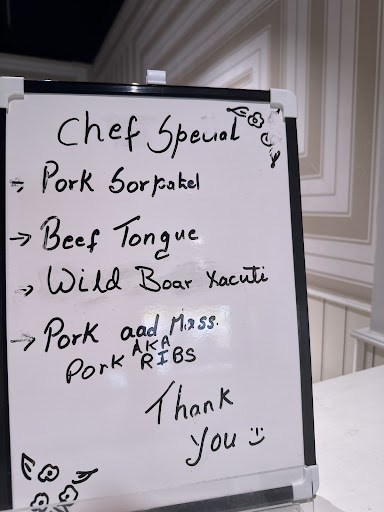 Chef Special
→ Pork Sorpatel
→ Beef Tongue
→ Wild Boar Xacuti
→ Pork aad Mass.
AKA
Pork RIBS
Thank
You :)